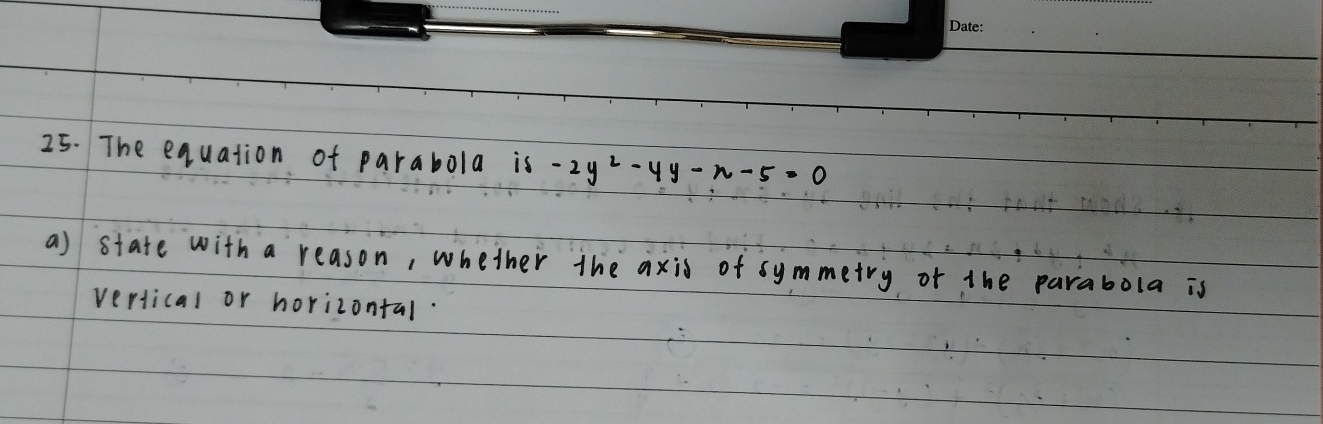 Date:
25. The equation of parabola is -2y² - 4y - x - 5 = 0
a) state with a reason, whether the axis of symmetry of the parabola is
vertical or horizontal.